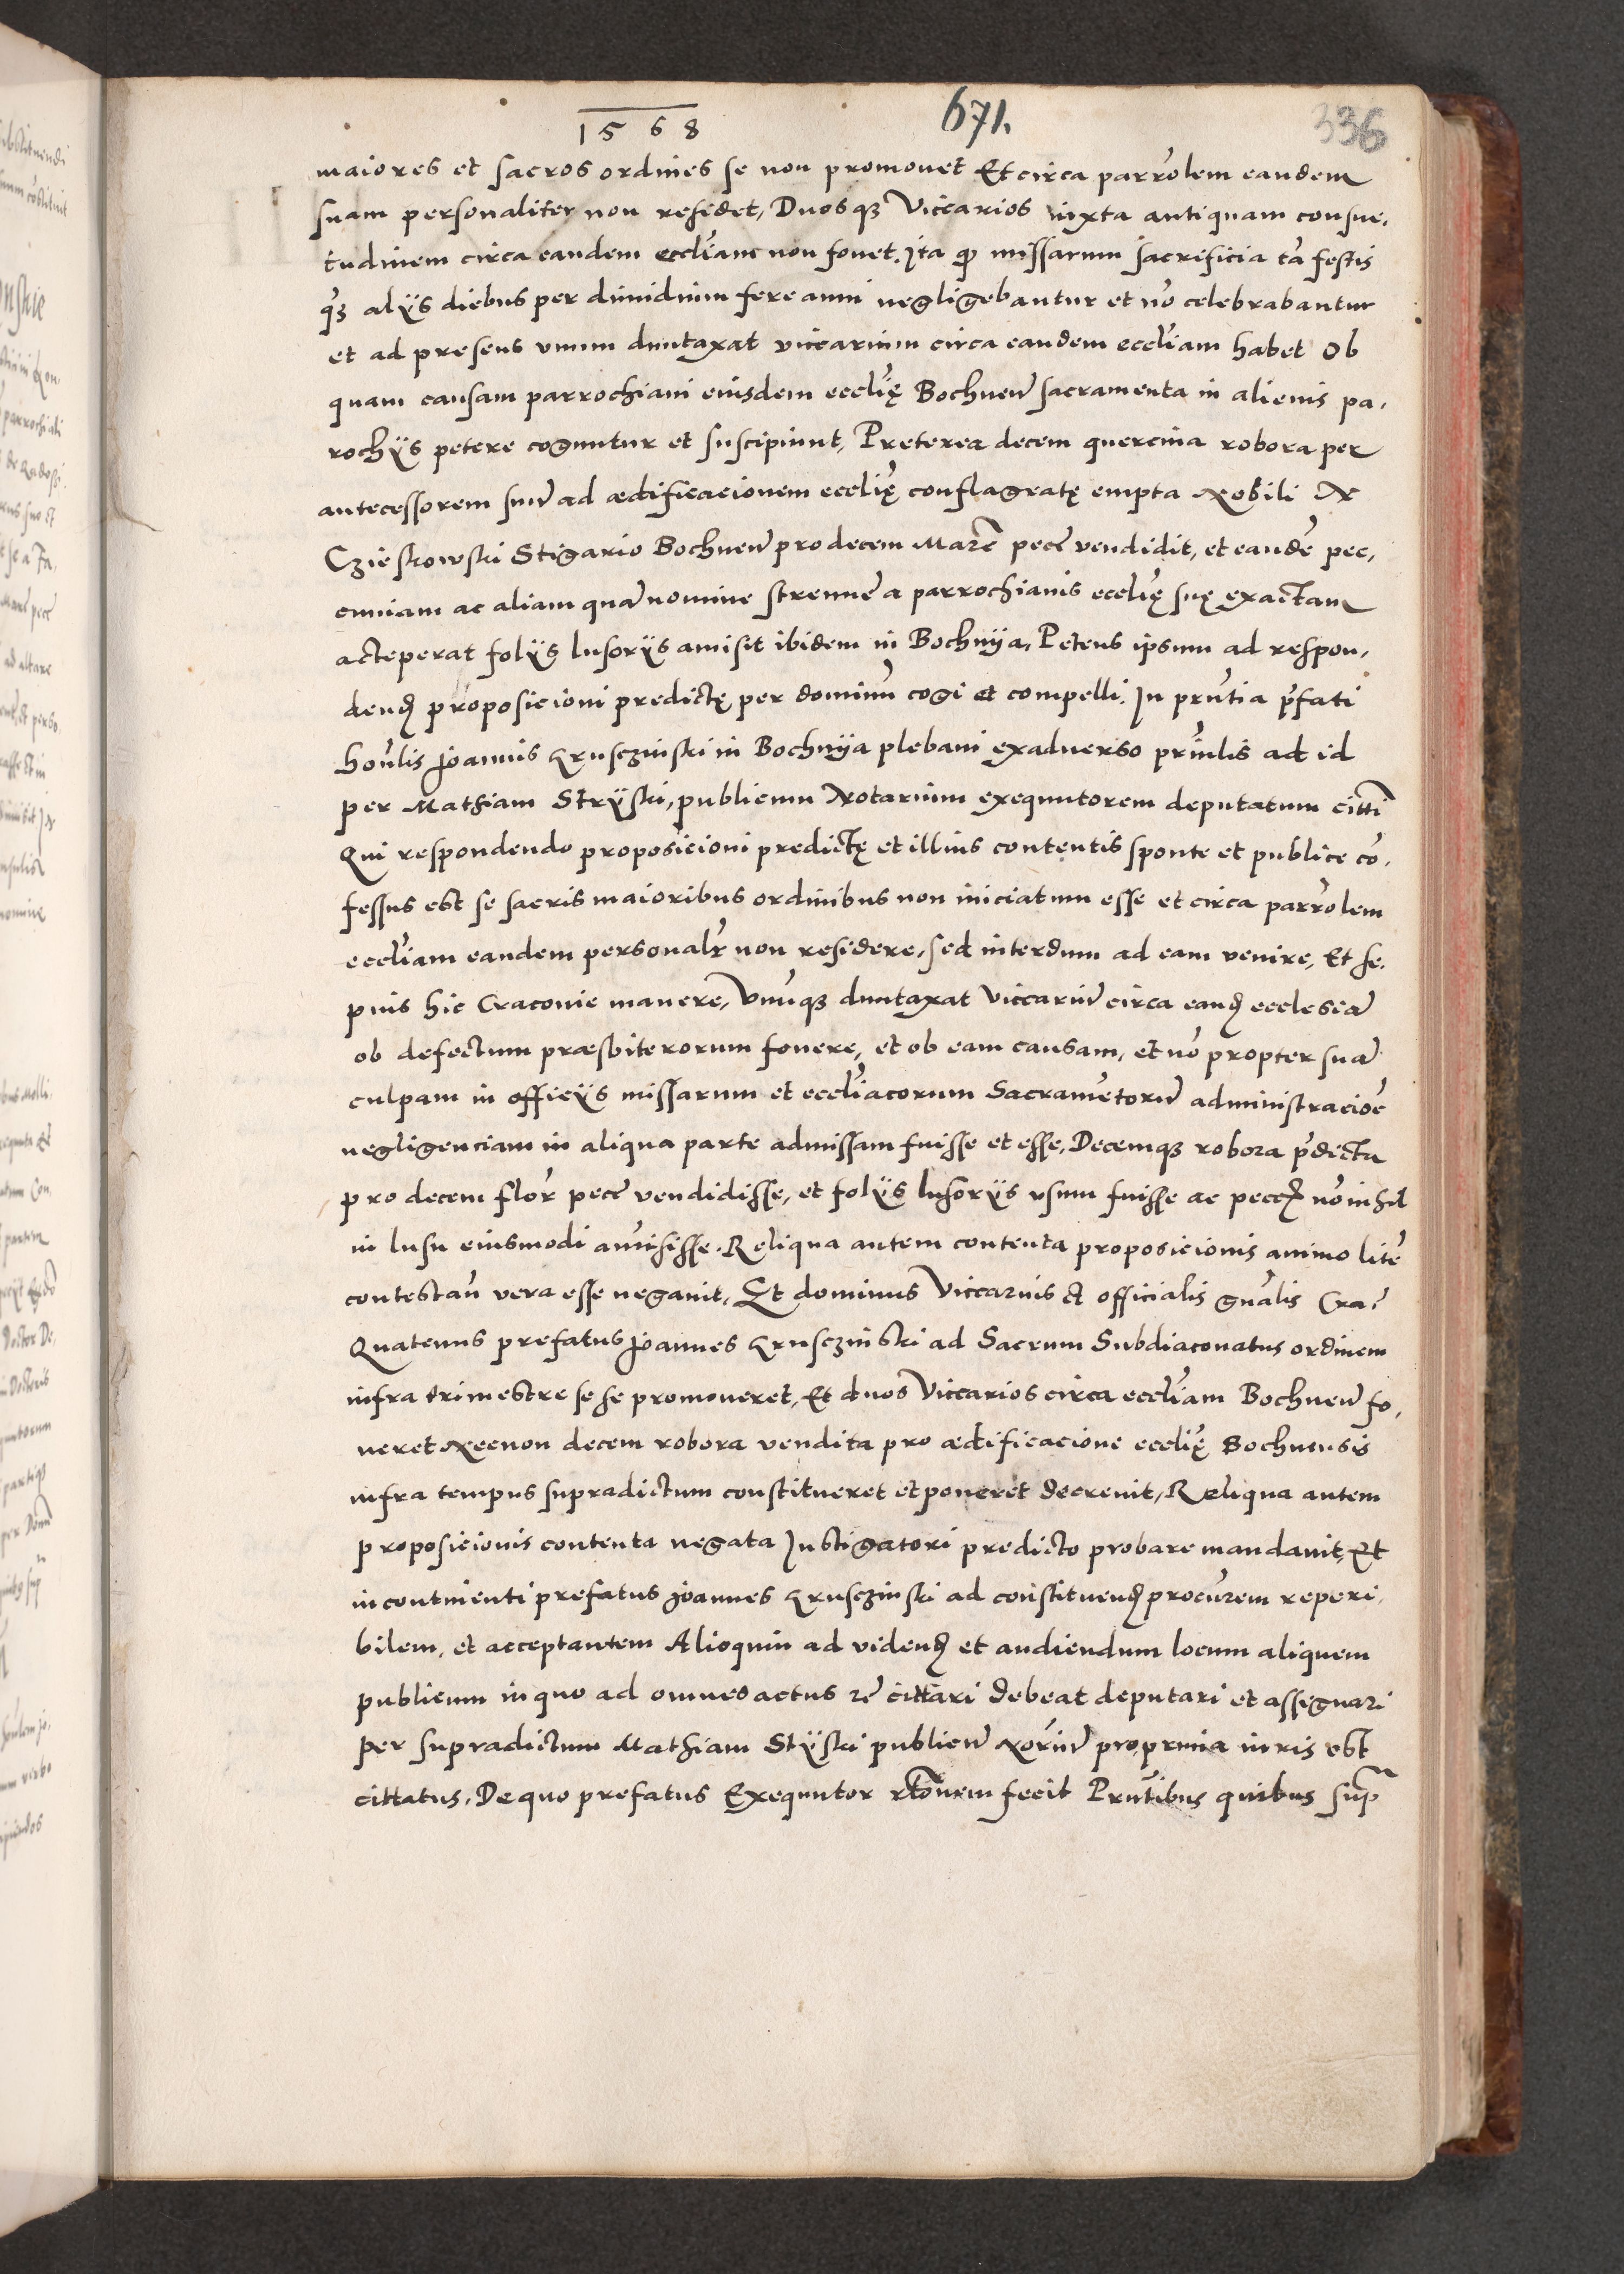 1568
671.
336
maiores et sacros ordines se non promovet Et circa parrōlem eandem
suam personaliter non residet, Duosqꝫ Viccarios iuxta antiquam consue-
tudinem circa eandem eccl̄iam non fovet. Ita ꝙ missarum sacrificia tā festis
qꝫ alÿs diebus per dimidium fere anni negligebantur et nō celebrabantur
et ad presens unum duntaxat viccarium circa eandem eccl̄iam habet Ob
quam causam parrochiani eiusdem eccl̄ię Bochnen̄ sacramenta in alienis pa-
rochÿs petere coguntur et suscipiunt, Preterea decem quercina robora per
antecessorem suū ad ædificacionem eccl̄ię conflagratę empta Nobili N
Czieskowski Stigario Bochnen̄ pro decem Marc̄ pecc̄ vendidit, et eandē pec-
cuniam ac aliam quā nomine strennę a parrochianis eccl̄ię suę exactam
acceperat folÿs lusorÿs amisit ibidem in Bochnÿa, Petens ipsum ad respon-
dend̄ proposicioni predictę per dominū cogi et compelli. In pr̄ntia p̄fati
hon̄lis Joannis Krusczinski in Bochnÿa plebani ex adverso prīnlis ad id
per Mathiam Strÿski, publicum Notarium exequutorem deputatum citti
Qui respondendo proposicioni predictę et illius contentis sponte et publice cō-
fessus est se sacris maioribus ordinibus non iniciatum esse et circa parrōlem
eccl̄iam eandem personalr̄ non residere, sed interdum ad eam venire, Et se-
pius hic Craconie manere, Unūqꝫ duntaxat Viccariū circa eand̄ ecclesiā
ob defectum præsbiterorum fovere, et ob eam causam, et nō propter suā
culpam in officÿs missarum et eccl̄iacorum Sacramētorū administracioē
negligenciam in aliqua parte admissam fuisse et esse, Decemqꝫ robora p̄dicta
pro decem flor̄ pecc̄ vendidisse, et folÿs lusorÿs usum fuisse ac pecc̄ nō nihil
in lusu eiusmodi amisisse. Reliqua autem contenta proposicionis animo litē
contestan̄ vera esse negavit, Et dominus Viccarius et officialis gn̄alis Cra-
Quatenus prefatus Joannes Krusczinski ad Sacrum Subdiaconatus ordinem
infra trimestre sese promoveret, Et duos Viccarios circa eccl̄iam Bochnen̄ fo-
veret Necnon decem robora vendita pro ædificacione eccl̄ię Bochnensis
infra tempus supradictum constitueret et poneret decrevit, Reliqua autem
proposicionis contenta negata Instigatori predicto probare mandavit, Et
in continenti prefatus Joannes Krusczinski ad constituend̄ procūrem reperi-
bilem, et acceptantem Alioquin ad vidend̄ et audiendum locum aliquem
publicum in quo ad omnes actus cittari debeat deputari et assignari
per supradictum Mathiam Stÿski publicū Norīū pro prima iuris est
cittatus, De quo prefatus Exequutor rc̄tōnem fecit Pr̄ntibus quibus sup̄